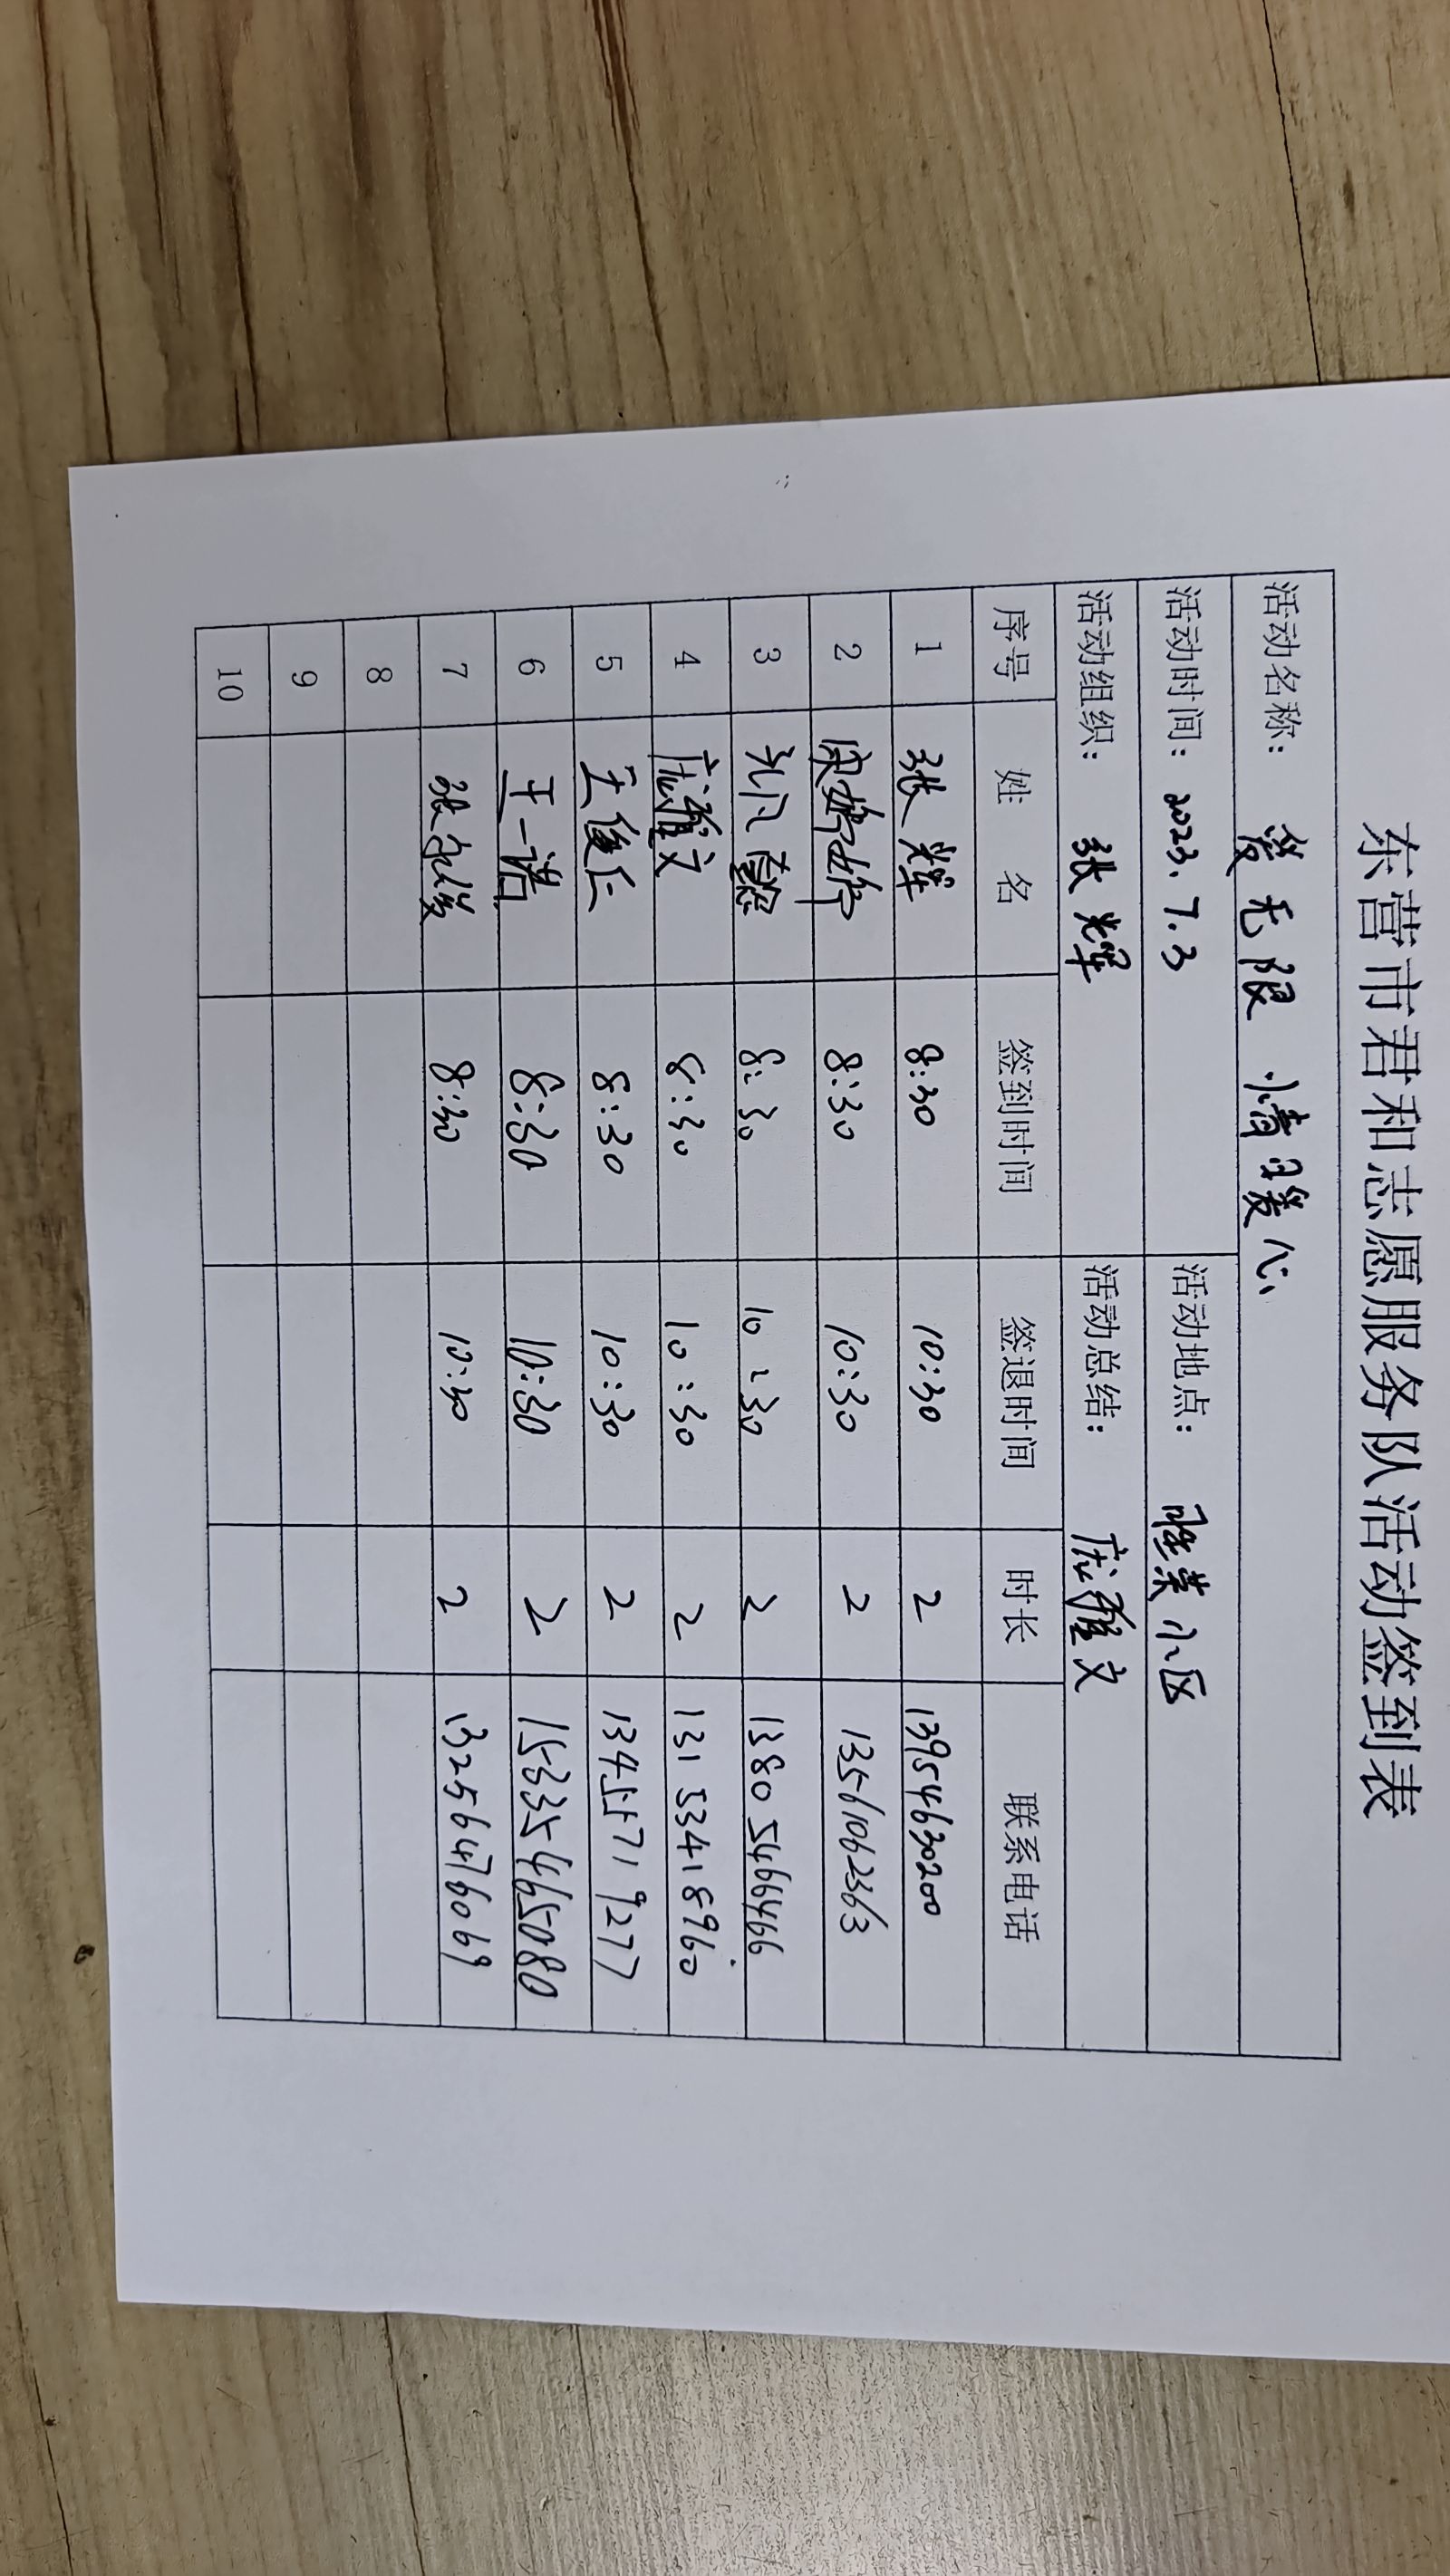 东营市君和志愿服务队活动签到表
活动名称： 爱无限 情暖心
活动时间：2023.7.3 活动地点： 胜莱小区
活动组织： 张辉 活动总结：
序号 姓 名 签到时间 签退时间 时长 联系电话
1 张辉 8:30 10:30 2 13954630200
2 8:30 10:30 2 13561062363
3 8:30 10:30 2 13805466466
4 8:30 10:30 2 13153418960
5 王俊仁 8:30 10:30 2 13455719277
6 王一诺 8:30 10:30 2 15335465080
7 8:30 10:30 2 13256476069
8
9
10